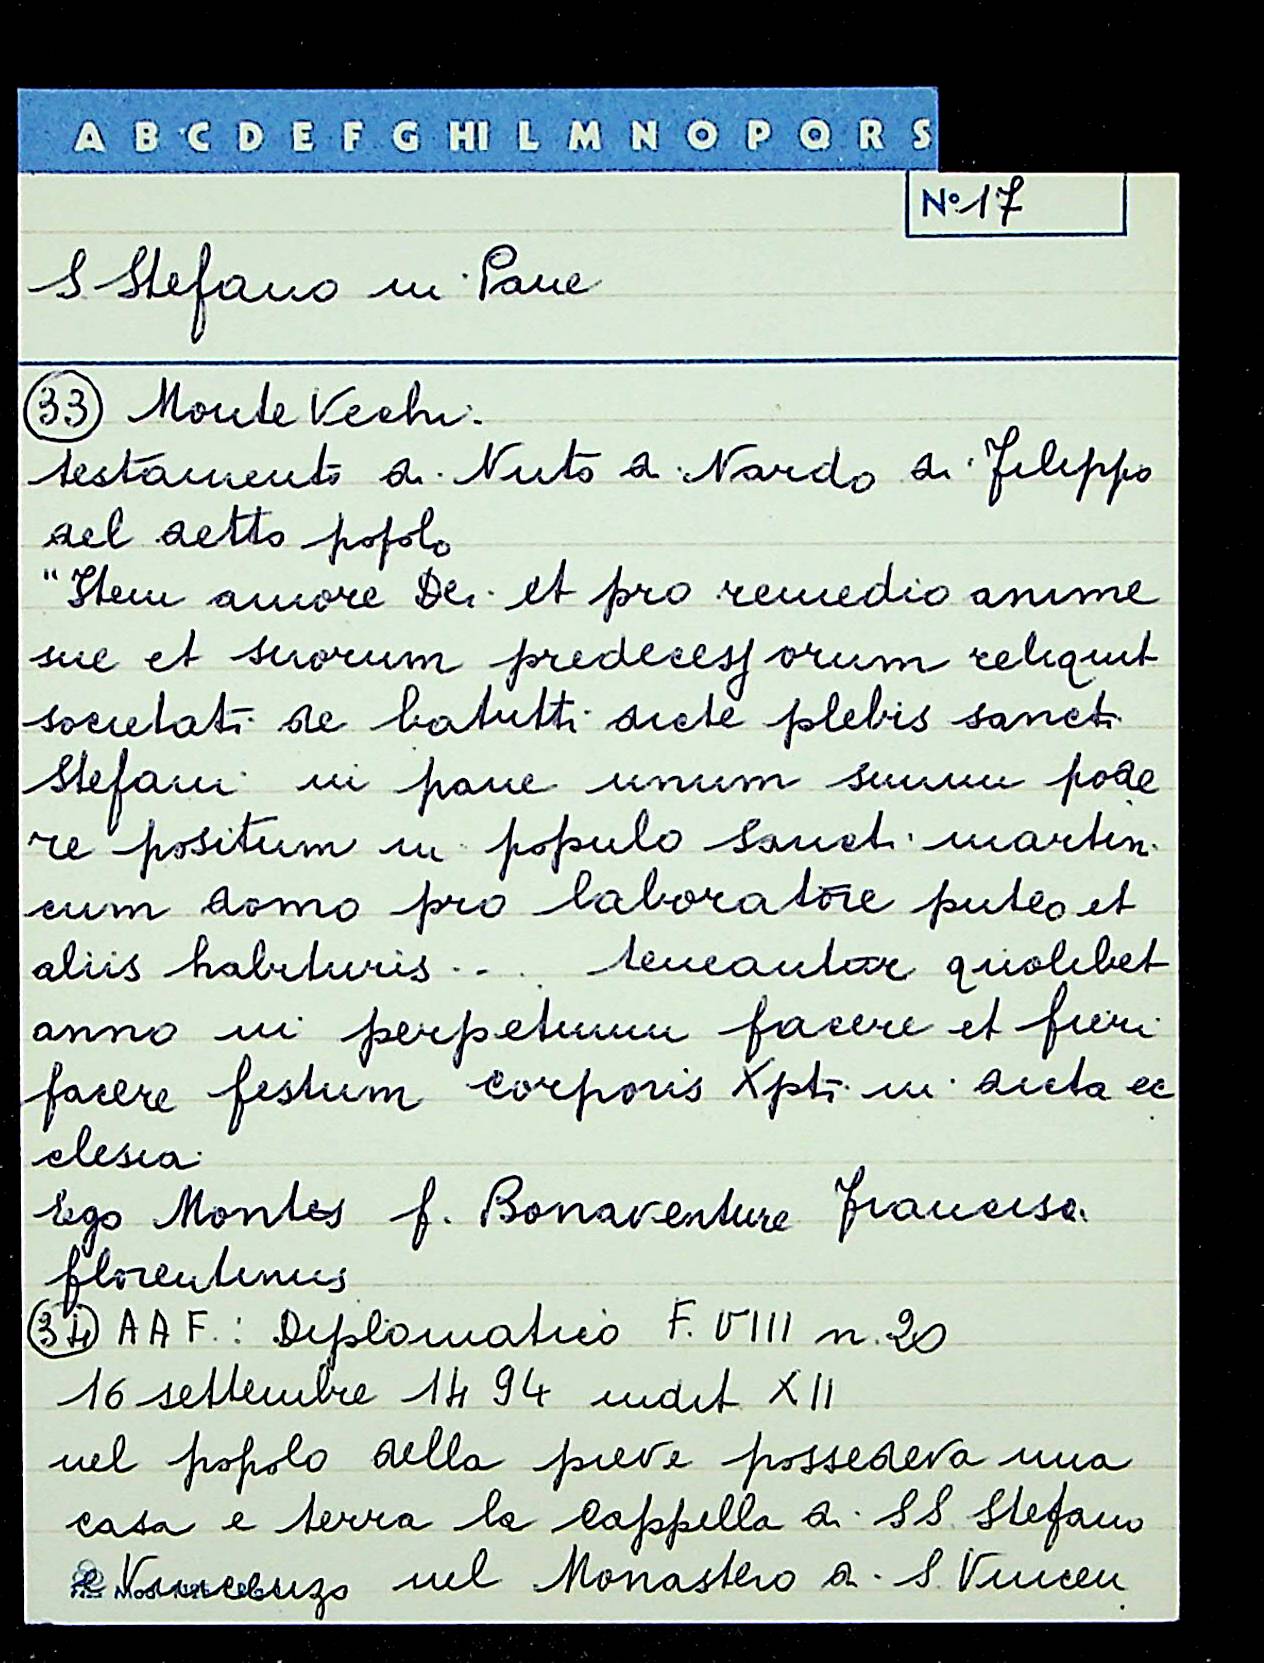 A B C D E F G HI L M N O P Q R S
N° 17
S Stefano in Pane
(33) Monte Vechi
testamento di Nuto di Nardo di Filippo
del detto popolo
"Item amore Dei et pro remedio anime
sue et suorum predecessorum reliquit
societati de batutti dicte plebis sancti
Stefani in pane unum suum pode
re positum in populo Sancti martini
cum domo pro laboratore puteo et
aliis habituris ... teneantur quolibet
anno in perpetuum facere et fieri
facere festum corporis Xpti in dicta ec
clesia
Ego Montes f. Bonaventure Francisci
florentinus
(34) A A F.: Diplomatico F. VIII n. 20
16 settembre 1494 indit XII
nel popolo della pieve possedeva una
casa e terra la Cappella di SS. Stefano
e Vincenzo nel Monastero di S. Vincen